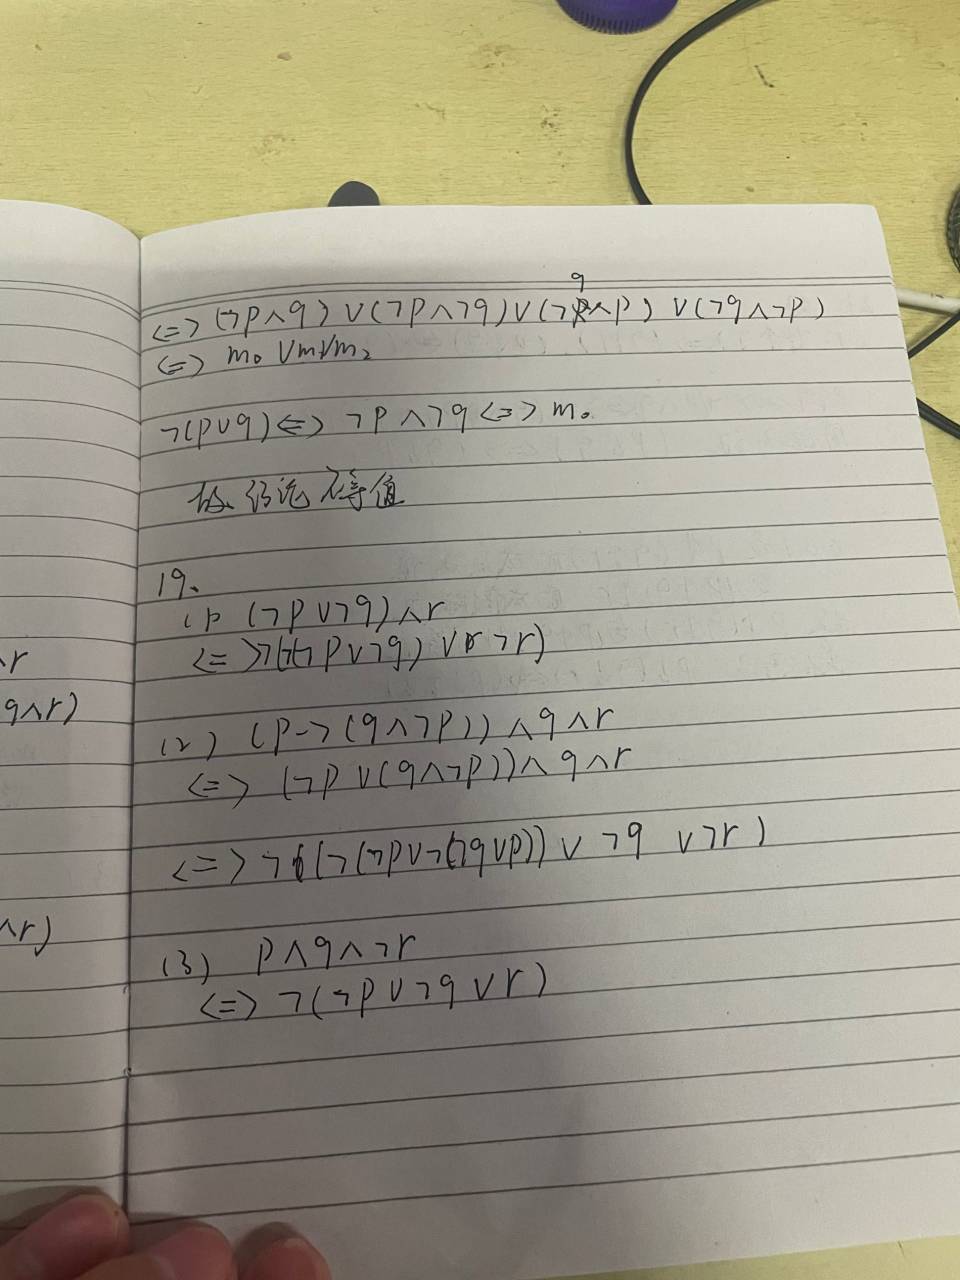 ∧r
q∧r)
∧r)
<=> (¬p∧q) ∨(¬p∧¬q)∨(¬q∧p) ∨(¬q∧¬p)
<=> m₀ ∨m₁∨m₂
¬(p∨q)<=> ¬p∧¬q<=> m₀
故 不等值
19.
(1) (¬p∨¬q)∧r
<=>¬(¬(¬p∨¬q) ∨ ¬r)
(2) (p→(q∧¬p))∧q∧r
<=> (¬p∨(q∧¬p))∧q∧r
<=>¬(¬(¬p∨¬(¬q∨p))∨ ¬q ∨¬r)
(3) p∧q∧¬r
<=> ¬(¬p∨¬q∨r)